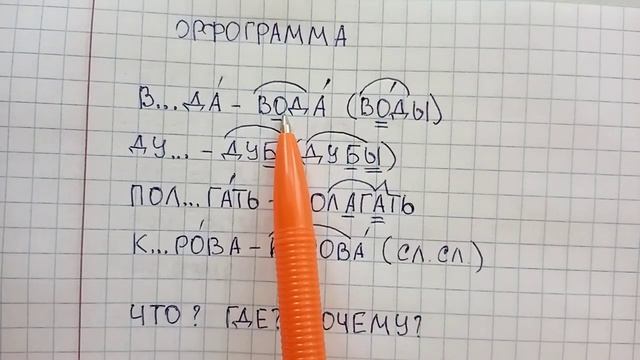 ОРФОГРАММА
В...ДА́ - ВОДА́ (ВО́ДЫ)
ДУ... - ДУБ (ДУБЫ)
ПОЛ...ГА́ТЬ - ОЛАГАТЬ
К...РО́ВА - ОВА́ (СЛ. СЛ.)
ЧТО? ГДЕ? ОЧЕМУ?